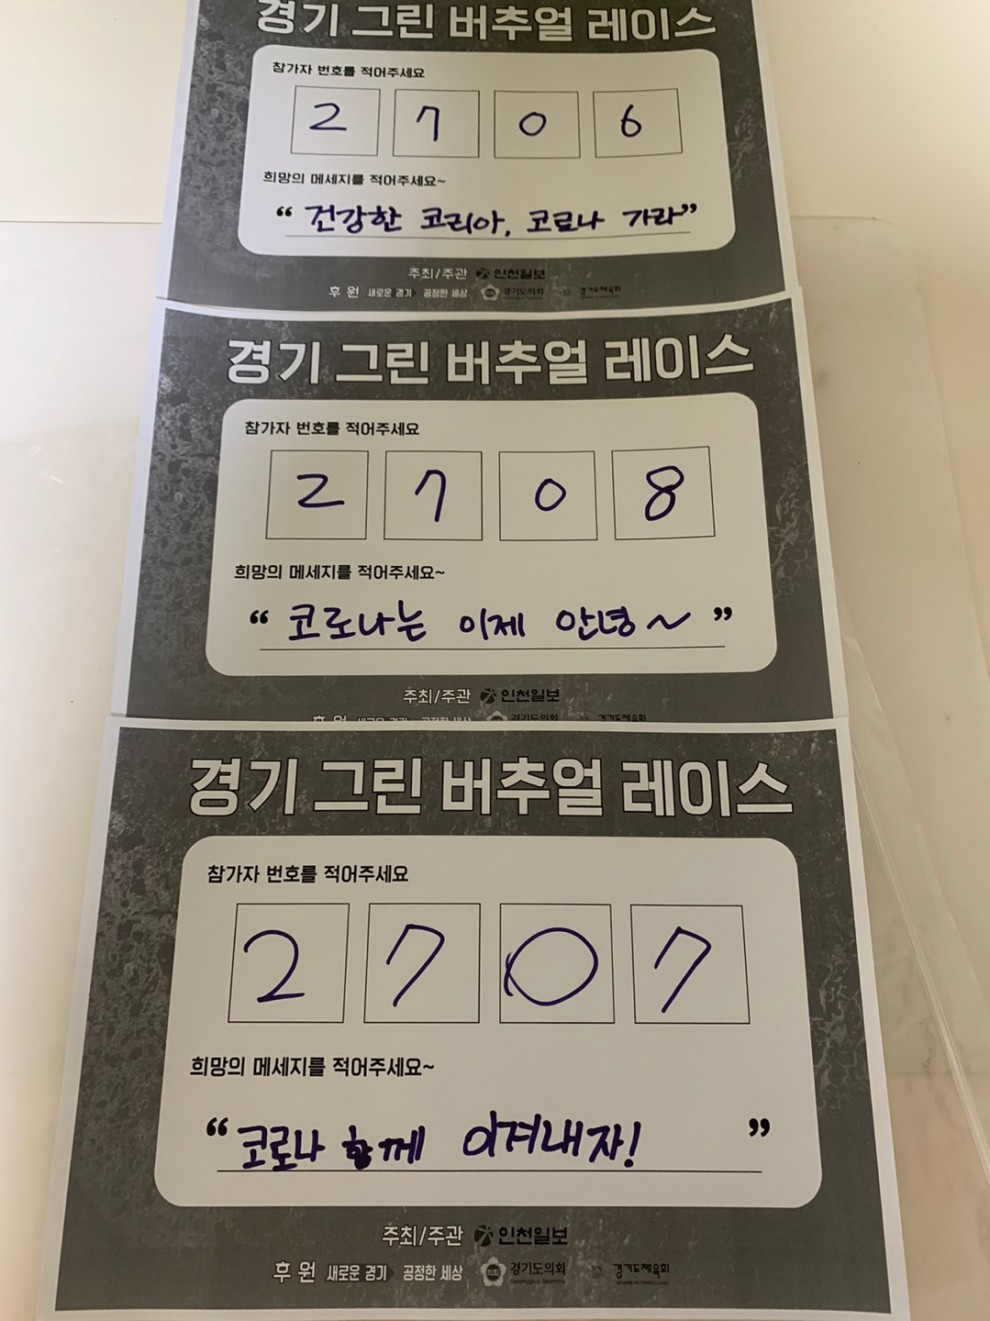 경기 그린 버추얼 레이스
참가자 번호를 적어주세요
2 7 0 6
희망의 메세지를 적어주세요~
“ 건강한 코리아, 코로나 가라”
주최/주관 인천일보
후 원 새로운 경기 공정한 세상 경기도의회 경기도체육회
경기 그린 버추얼 레이스
참가자 번호를 적어주세요
2 7 0 8
희망의 메세지를 적어주세요~
“ 코로나는 이제 안녕~ ”
주최/주관 인천일보
후 원 새로운 경기 공정한 세상 경기도의회 경기도체육회
경기 그린 버추얼 레이스
참가자 번호를 적어주세요
2 7 0 7
희망의 메세지를 적어주세요~
“ 코로나 함께 이겨내자! ”
주최/주관 인천일보
후 원 새로운 경기 공정한 세상 경기도의회 경기도체육회